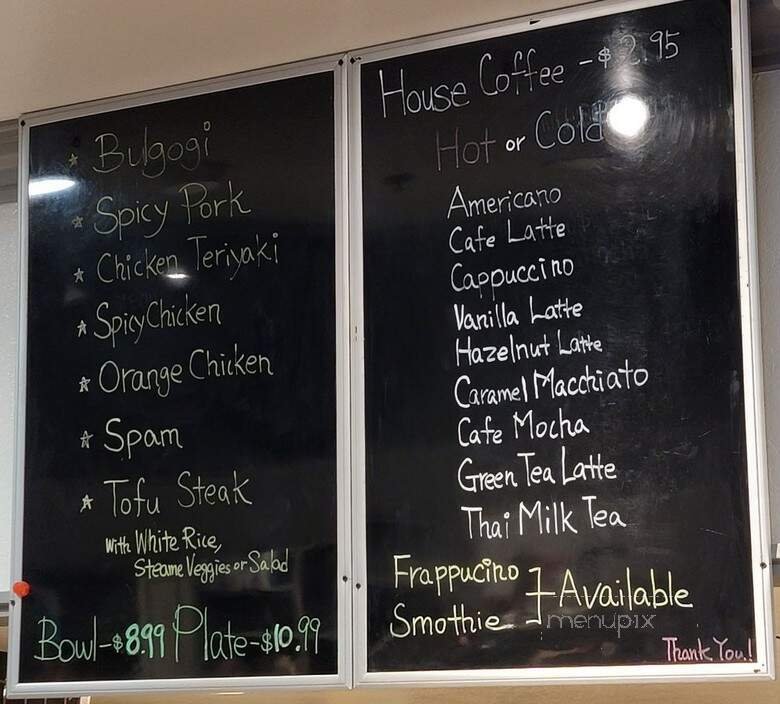 Bulgogi
Spicy Pork
Chicken Teriyaki
Spicy Chicken
Orange Chicken
Spam
Tofu Steak
With White Rice,
Steame Veggies or Salad
Bowl-$8.99 Plate-$10.99
House Coffee -$2.95
Hot or Cold
Americano
Cafe Latte
Cappuccino
Vanilla Latte
Hazelnut Latte
Caramel Macchiato
Cafe Mocha
Green Tea Latte
Thai Milk Tea
Frappucino
Smothie
Available
menupix
Thank You!